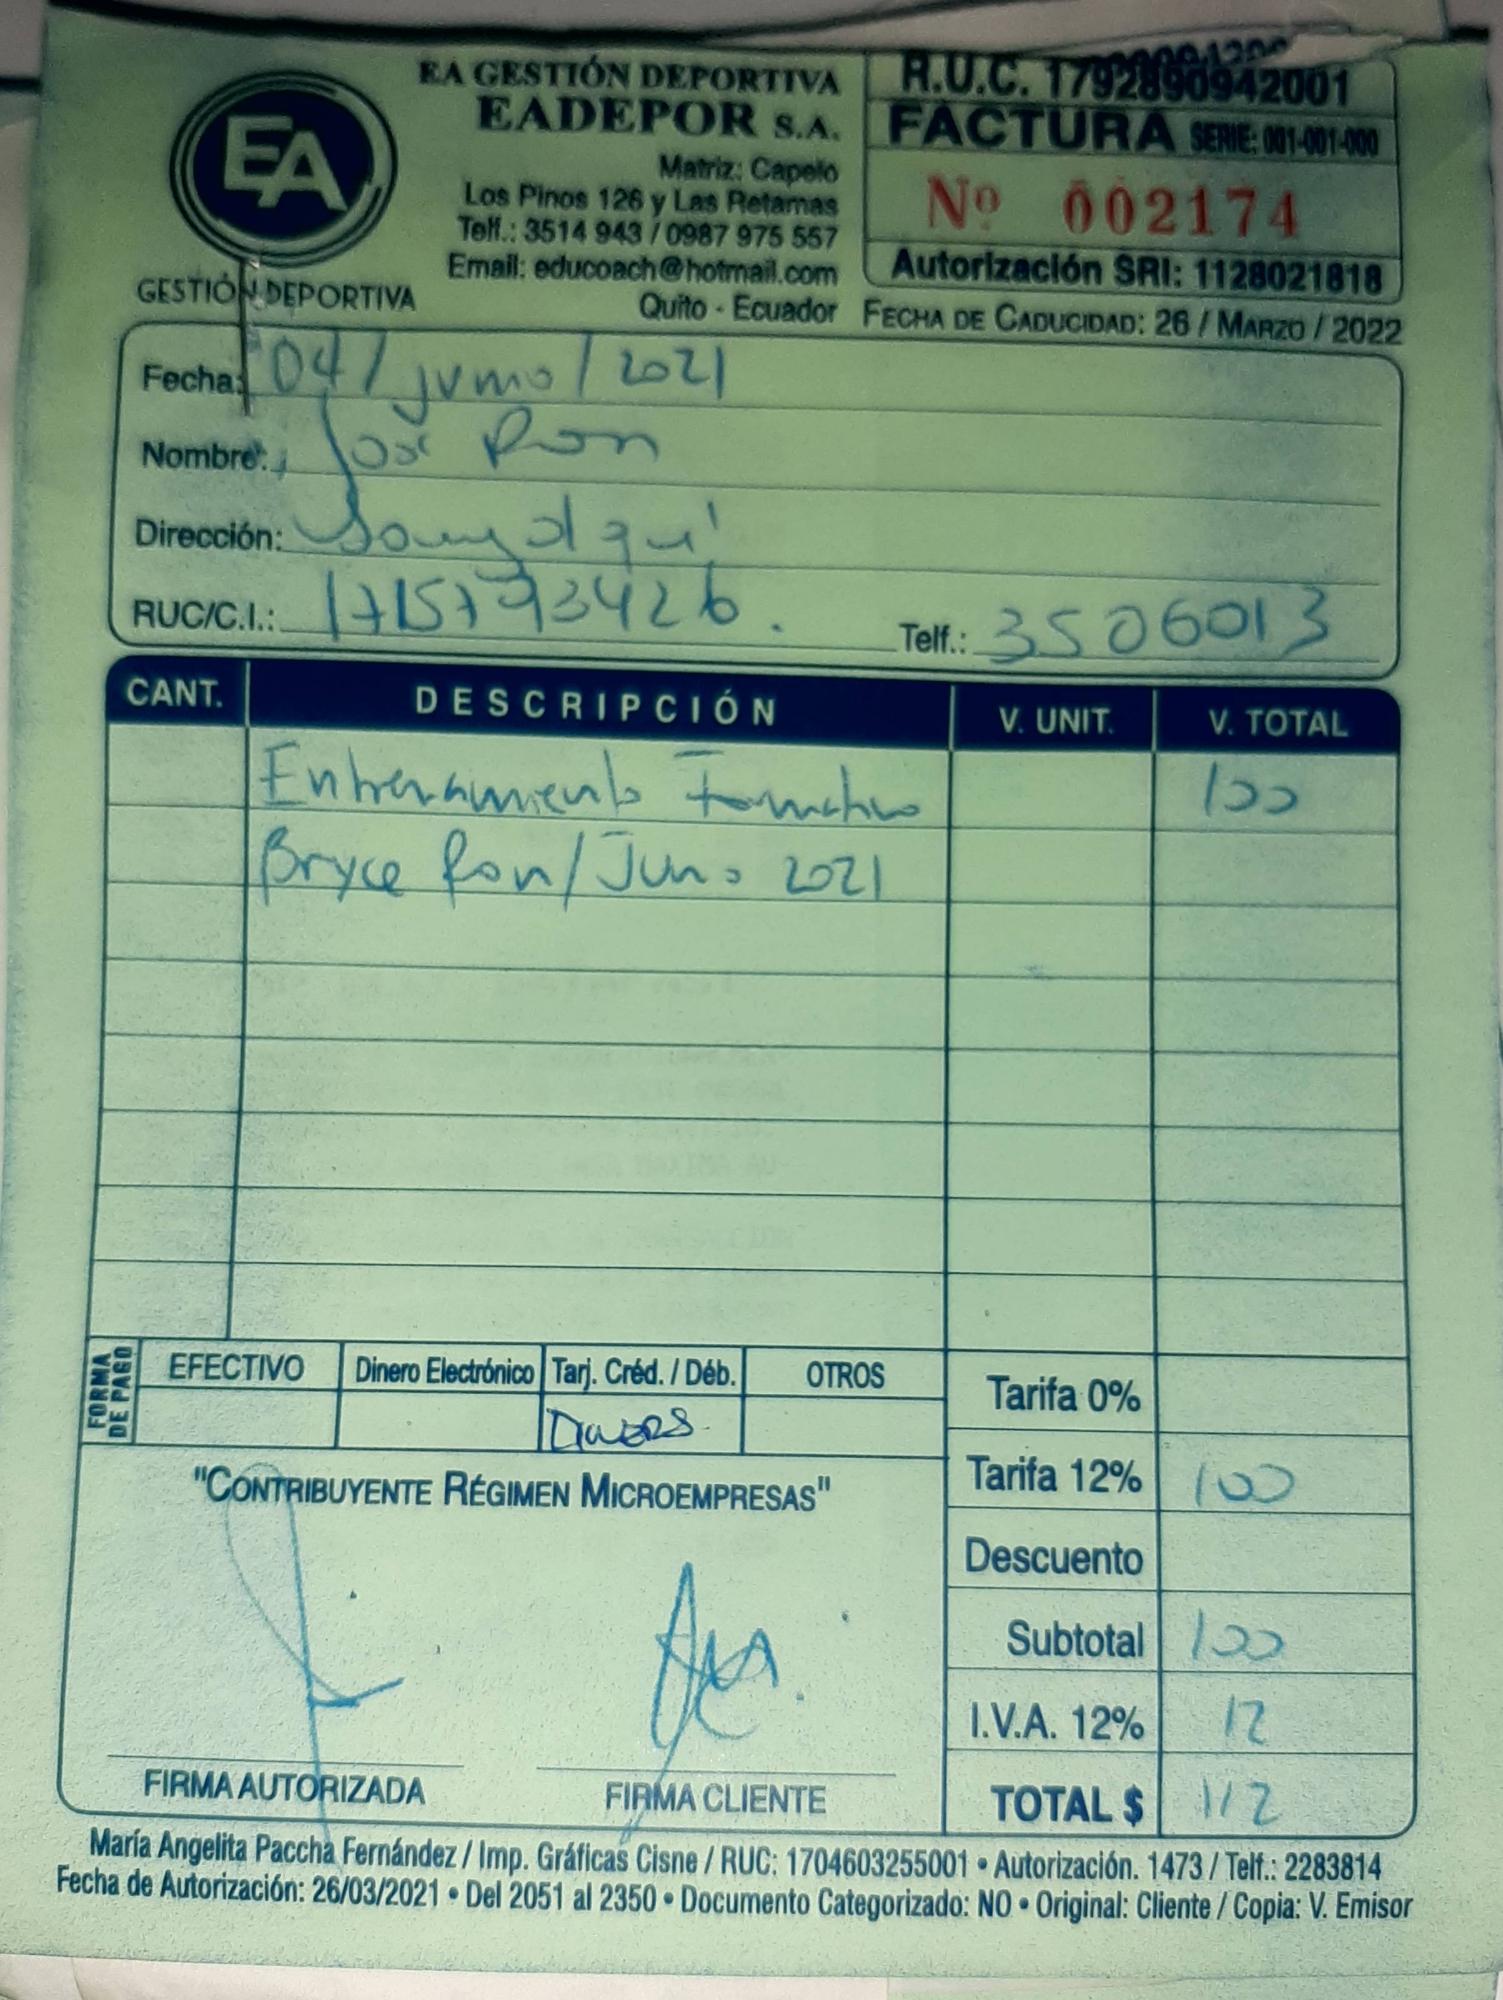 EA
GESTIÓN DEPORTIVA
EA GESTIÓN DEPORTIVA
EADEPOR S.A.
Matriz: Capelo
Los Pinos 126 y Las Retamas
Telf.: 3514 943 / 0987 975 557
Email: educoach@hotmail.com
Quito - Ecuador
R.U.C. 1792890942001
FACTURA SERIE: 001-001-000
Nº 002174
Autorización SRI: 1128021818
FECHA DE CADUCIDAD: 26 / MARZO / 2022
Fecha: 04 / junio / 2021
Nombre: José Ron
Dirección: Sangolquí
RUC/C.I.: 1715793426. Telf.: 3506013
CANT. DESCRIPCIÓN V. UNIT. V. TOTAL
Entrenamiento Formativo 100
Bryce Ron / Junio 2021
FORMA DE PAGO
EFECTIVO Dinero Electrónico Tarj. Créd. / Déb. OTROS
DINERS
Tarifa 0%
Tarifa 12% 100
Descuento
Subtotal 100
I.V.A. 12% 12
TOTAL $ 112
"CONTRIBUYENTE RÉGIMEN MICROEMPRESAS"
FIRMA AUTORIZADA FIRMA CLIENTE
María Angelita Paccha Fernández / Imp. Gráficas Cisne / RUC: 1704603255001 • Autorización. 1473 / Telf.: 2283814
Fecha de Autorización: 26/03/2021 • Del 2051 al 2350 • Documento Categorizado: NO • Original: Cliente / Copia: V. Emisor